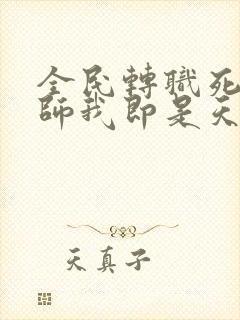 全民轉職死
師我即是天
天真子